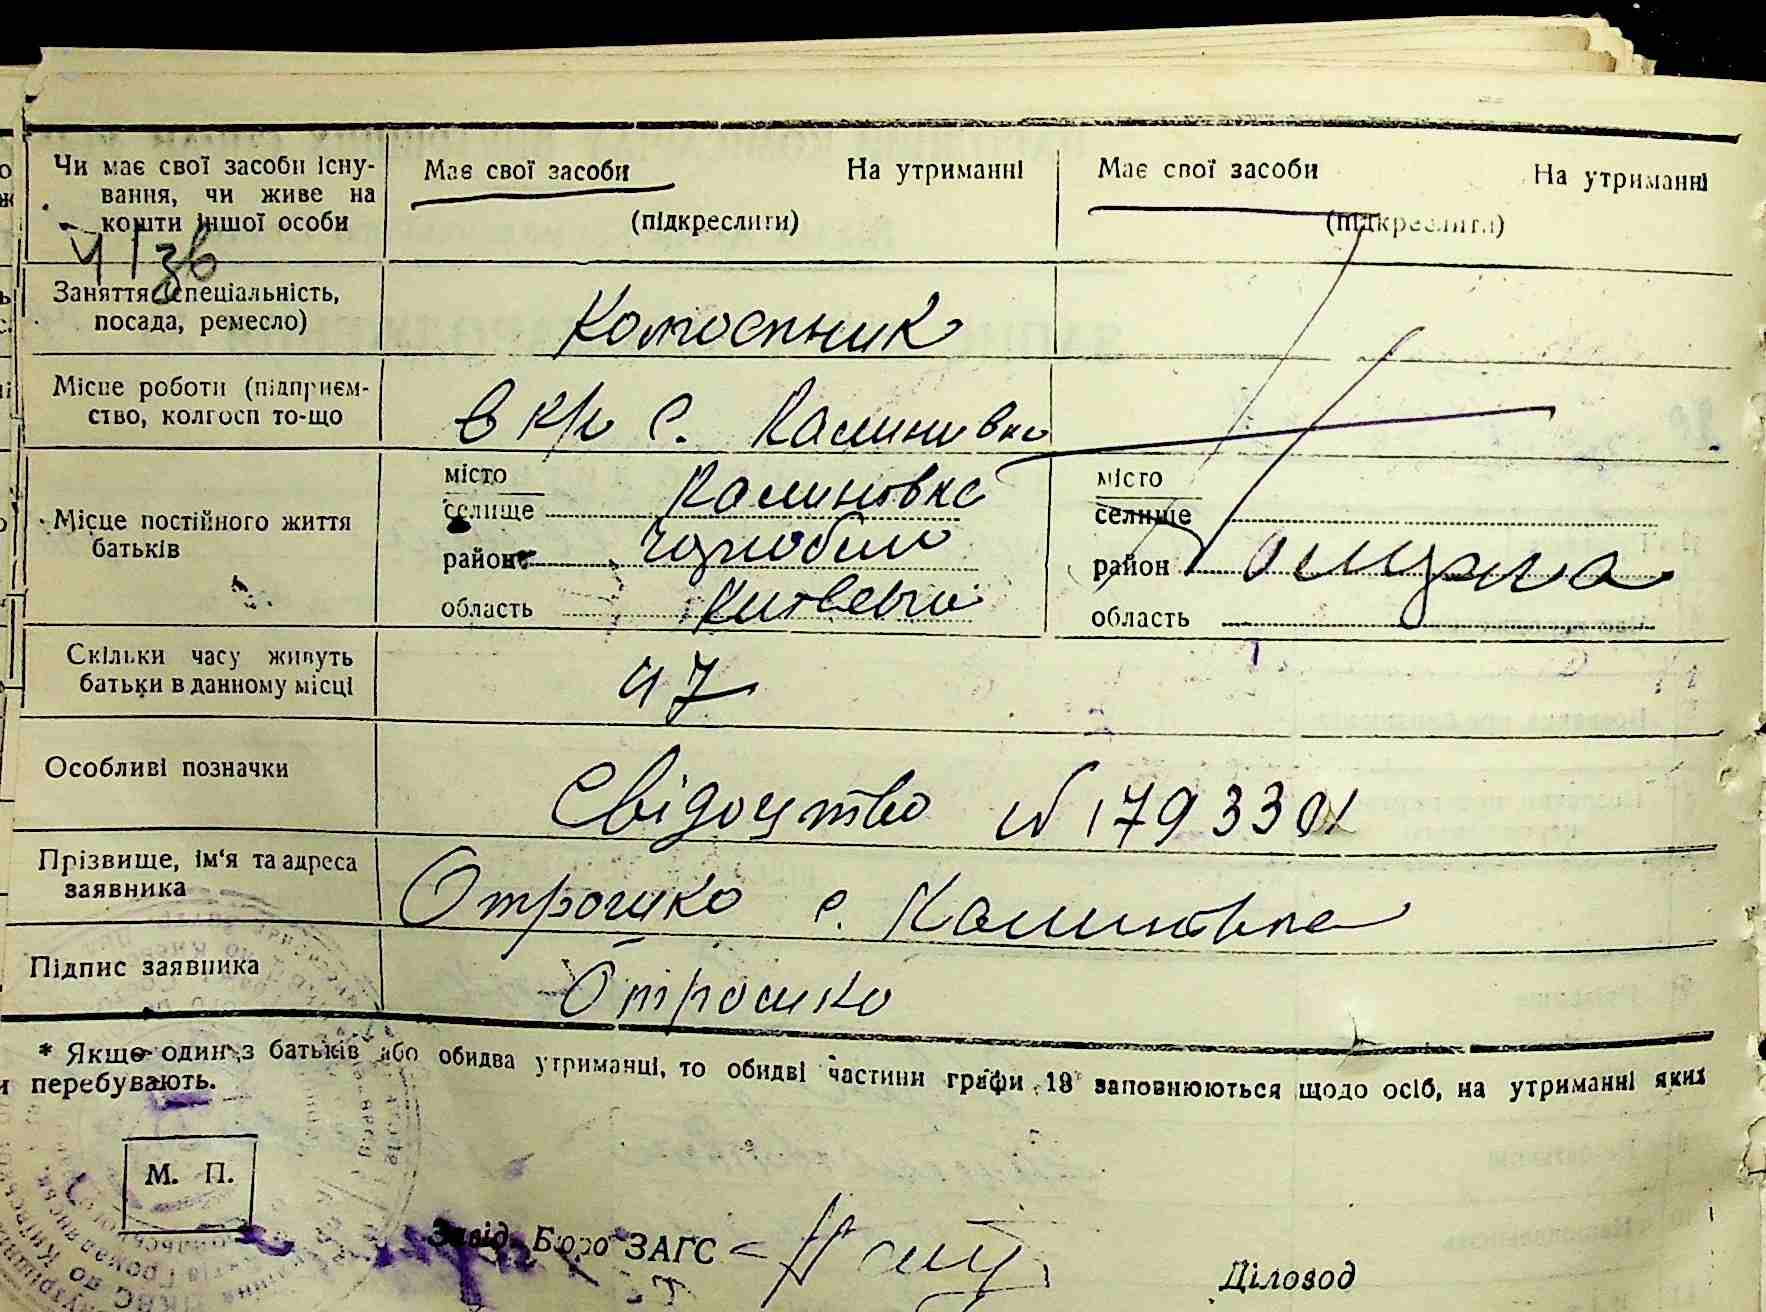 Чи має свої засоби існу-
вання, чи живе на
кошти іншої особи
Має свої засоби На утриманні
(підкреслити)
Має свої засоби На утриманні
(підкреслити)
Заняття (спеціальність,
посада, ремесло)
Колгоспник
Місце роботи (підприєм-
ство, колгосп то-що
в к/г с. Калинивка
Місце постійного життя
батьків
місто
селище Калиновка
район Чорнобиль
область
місто
селище
район
область
Скільки часу живуть
батьки в данному місці
47
Особливі позначки
Свідоцтво № 179330
Прізвище, ім'я та адреса
заявника
Отрошко с. Калиновка
Підпис заявника
Отрошко
* Якщо один з батьків або обидва утриманці, то обидві частини графи 18 заповнюються щодо осіб, на утриманні яких
перебувають.
М. П.
Завід. Бюро ЗАГС
Діловод